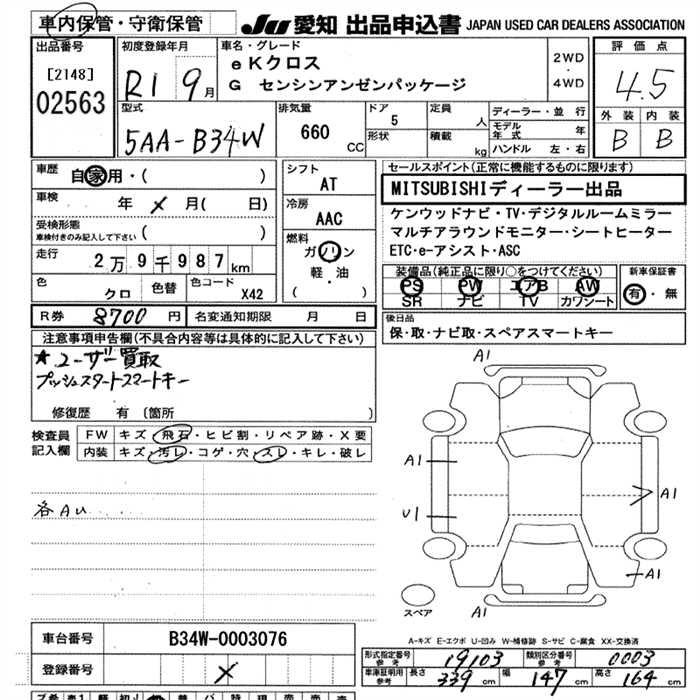 車内保管・守衛保管 JU 愛知 出品申込書 JAPAN USED CAR DEALERS ASSOCIATION
出品番号 [2148] 02563
初度登録年月 R1 9月
車名・グレード eKクロス
G センシンアンゼンパッケージ
2WD・4WD
評価点 4.5
外装 B 内装 B
型式 5AA-B34W
排気量 660 CC
ドア 5 形状
定員 人 積載 kg
ディーラー・並行
モデル年式 年
ハンドル 左・右
車歴 自家用・( )
車検 年 X 月( 日)
受検形態 車検付きのみ記入して下さい ( )
走行 2万9千987km
色 クロ 色替 色コード X42
シフト AT
冷房 AAC
燃料 ガソリン 軽・油 ( )
セールスポイント(正常に機能するものに限ります)
MITSUBISHIディーラー出品
ケンウッドナビ・TV・デジタルルームミラー
マルチアラウンドモニター・シートヒーター
ETC・e-アシスト・ASC
装備品(純正品に限り○をつけてください)
PS PW エアB AW
SR ナビ TV カワシート
新車保証書 有・無
R券 8700 円 名変通知期限 月 日
後日品
保・取・ナビ取・スペアスマートキー
注意事項申告欄(不具合内容等は具体的に記入して下さい)
★ユーザー買取
プッシュスタートスマートキー
修復歴 有 (箇所 )
検査員記入欄
FW キズ・飛石・ヒビ割・リペア跡・X要
内装 キズ・汚レ・コゲ・穴・スレ・キレ・破レ
各AU
A1
A1
A1
U1
A1
スペア A1
A-キズ E-エクボ U-凹み W-補修跡 S-サビ C-腐食 XX-交換済
車台番号 B34W-0003076
登録番号 X
形式指定番号 参考 19103 類別区分番号 参考 0003
車庫証明用 参考 長さ 339 cm 幅 147 cm 高さ 164 cm